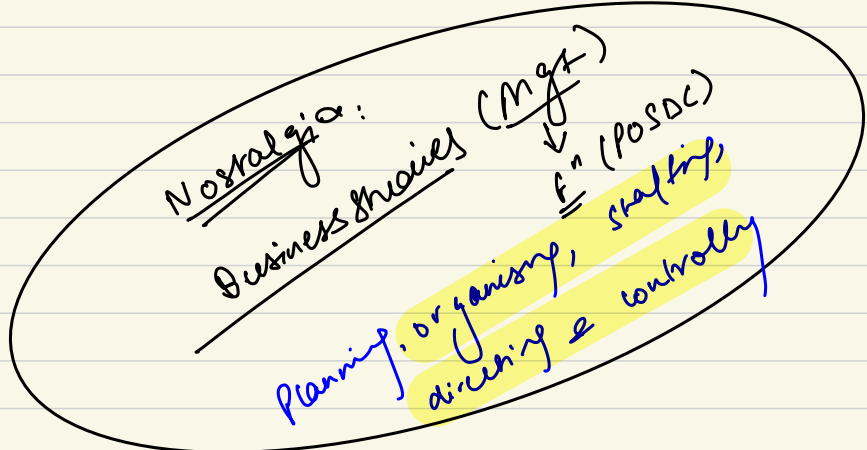 Nostalgia:
Business Studies (Mgt)
↓
fⁿ (POSDC)
Planning, organising, staffing,
directing & controlling